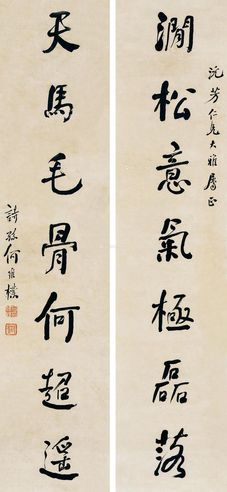 澗松意氣極磊落
沅芳仁兄大雅屬正
天馬毛骨何超遥
詩孫何維樸